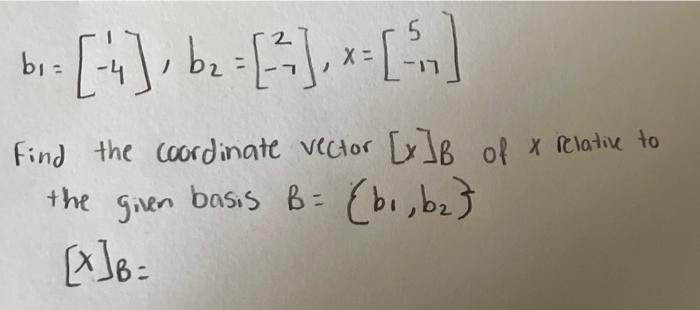 b1 = [1 -4], b2 = [2 -7], x = [5 -17]
Find the coordinate vector [x]B of x relative to
the given basis B = {b1, b2}
[x]B =